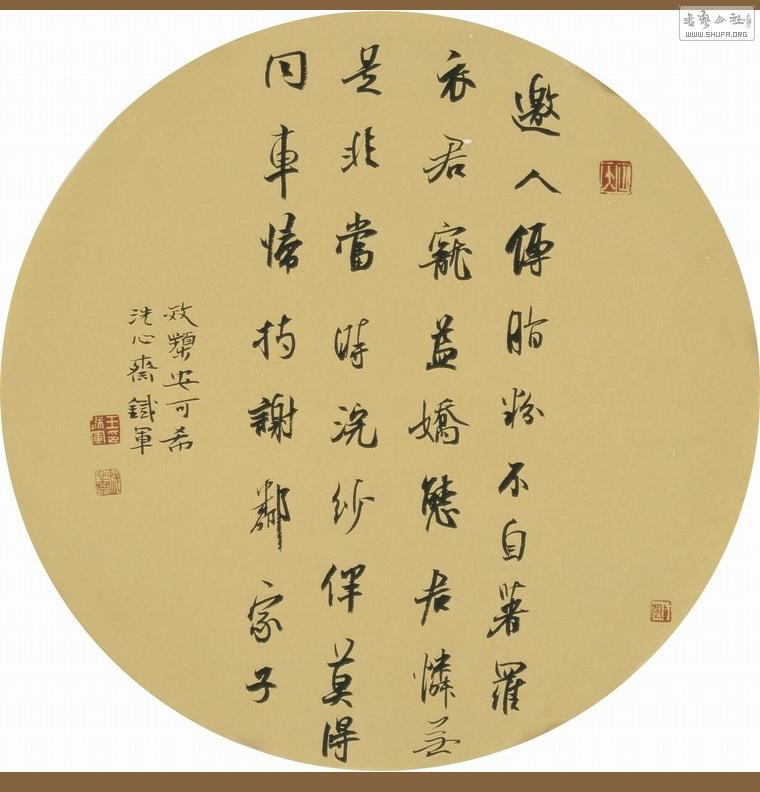 邀人傅脂粉不自著羅
衣君寵益嬌態君憐無
是非當時浣紗伴莫得
同車歸持謝鄰家子
效顰安可希
洗心齋鐵軍
书艺公社
WWW.SHUFA.ORG